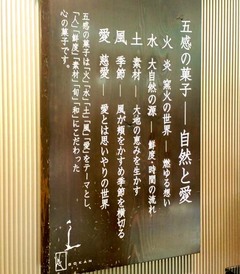 五感の菓子—自然と愛
火 炎 窯火の世界 — 燃ゆる想い
水 大自然の源 — 鮮度・時間の流れ
土 素材 — 大地の恵みを生かす
風 季節 — 風が頬をかすめ季節を横切る
愛 慈愛 — 愛とは思いやりの世界
五感の菓子は「火」「水」「土」「風」「愛」をテーマとし、
「人」「鮮度」「素材」「旬」「和」にこだわった
心の菓子です。
GOKAN